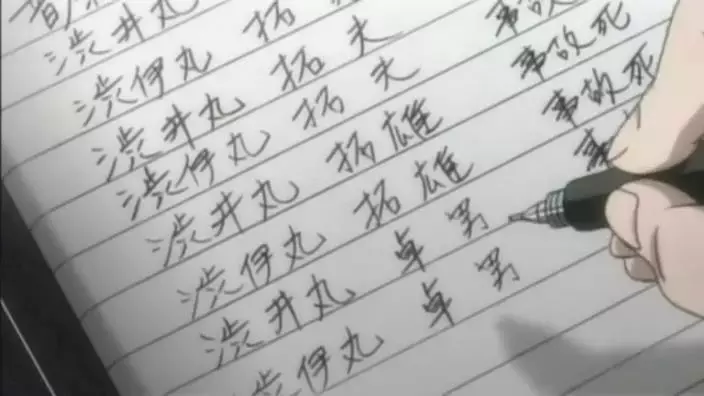 渋井丸
渋伊丸 拓
渋井丸 拓夫
渋伊丸 拓夫 事故死
渋井丸 拓雄 事故死
渋伊丸 拓雄 事故死
渋井丸 卓男 事
渋伊丸 卓男